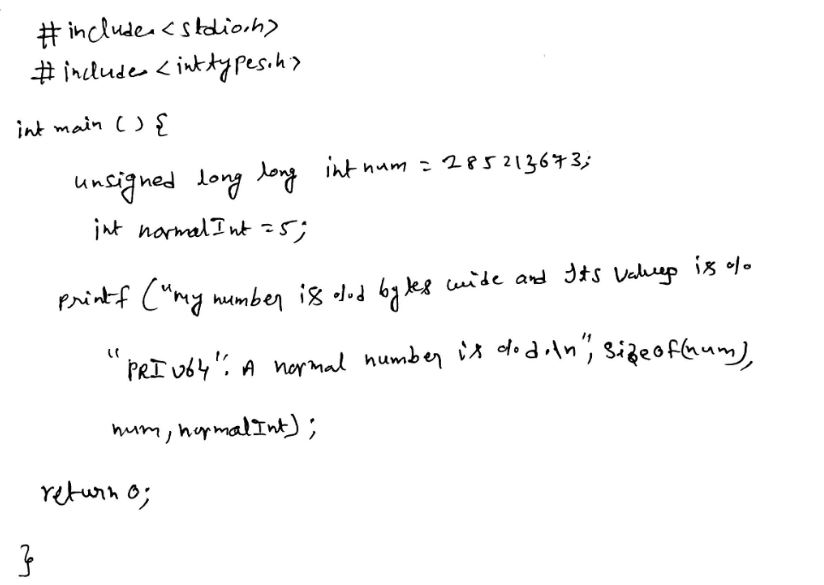 #include<stdio.h>
#include<inttypes.h>
int main () {
unsigned long long int num = 285213673;
int normalInt = 5;
printf ("my number is %d bytes wide and Its value is %
"PRIu64". A normal number is %d.\n", sizeof(num),
num, normalInt);
return 0;
}